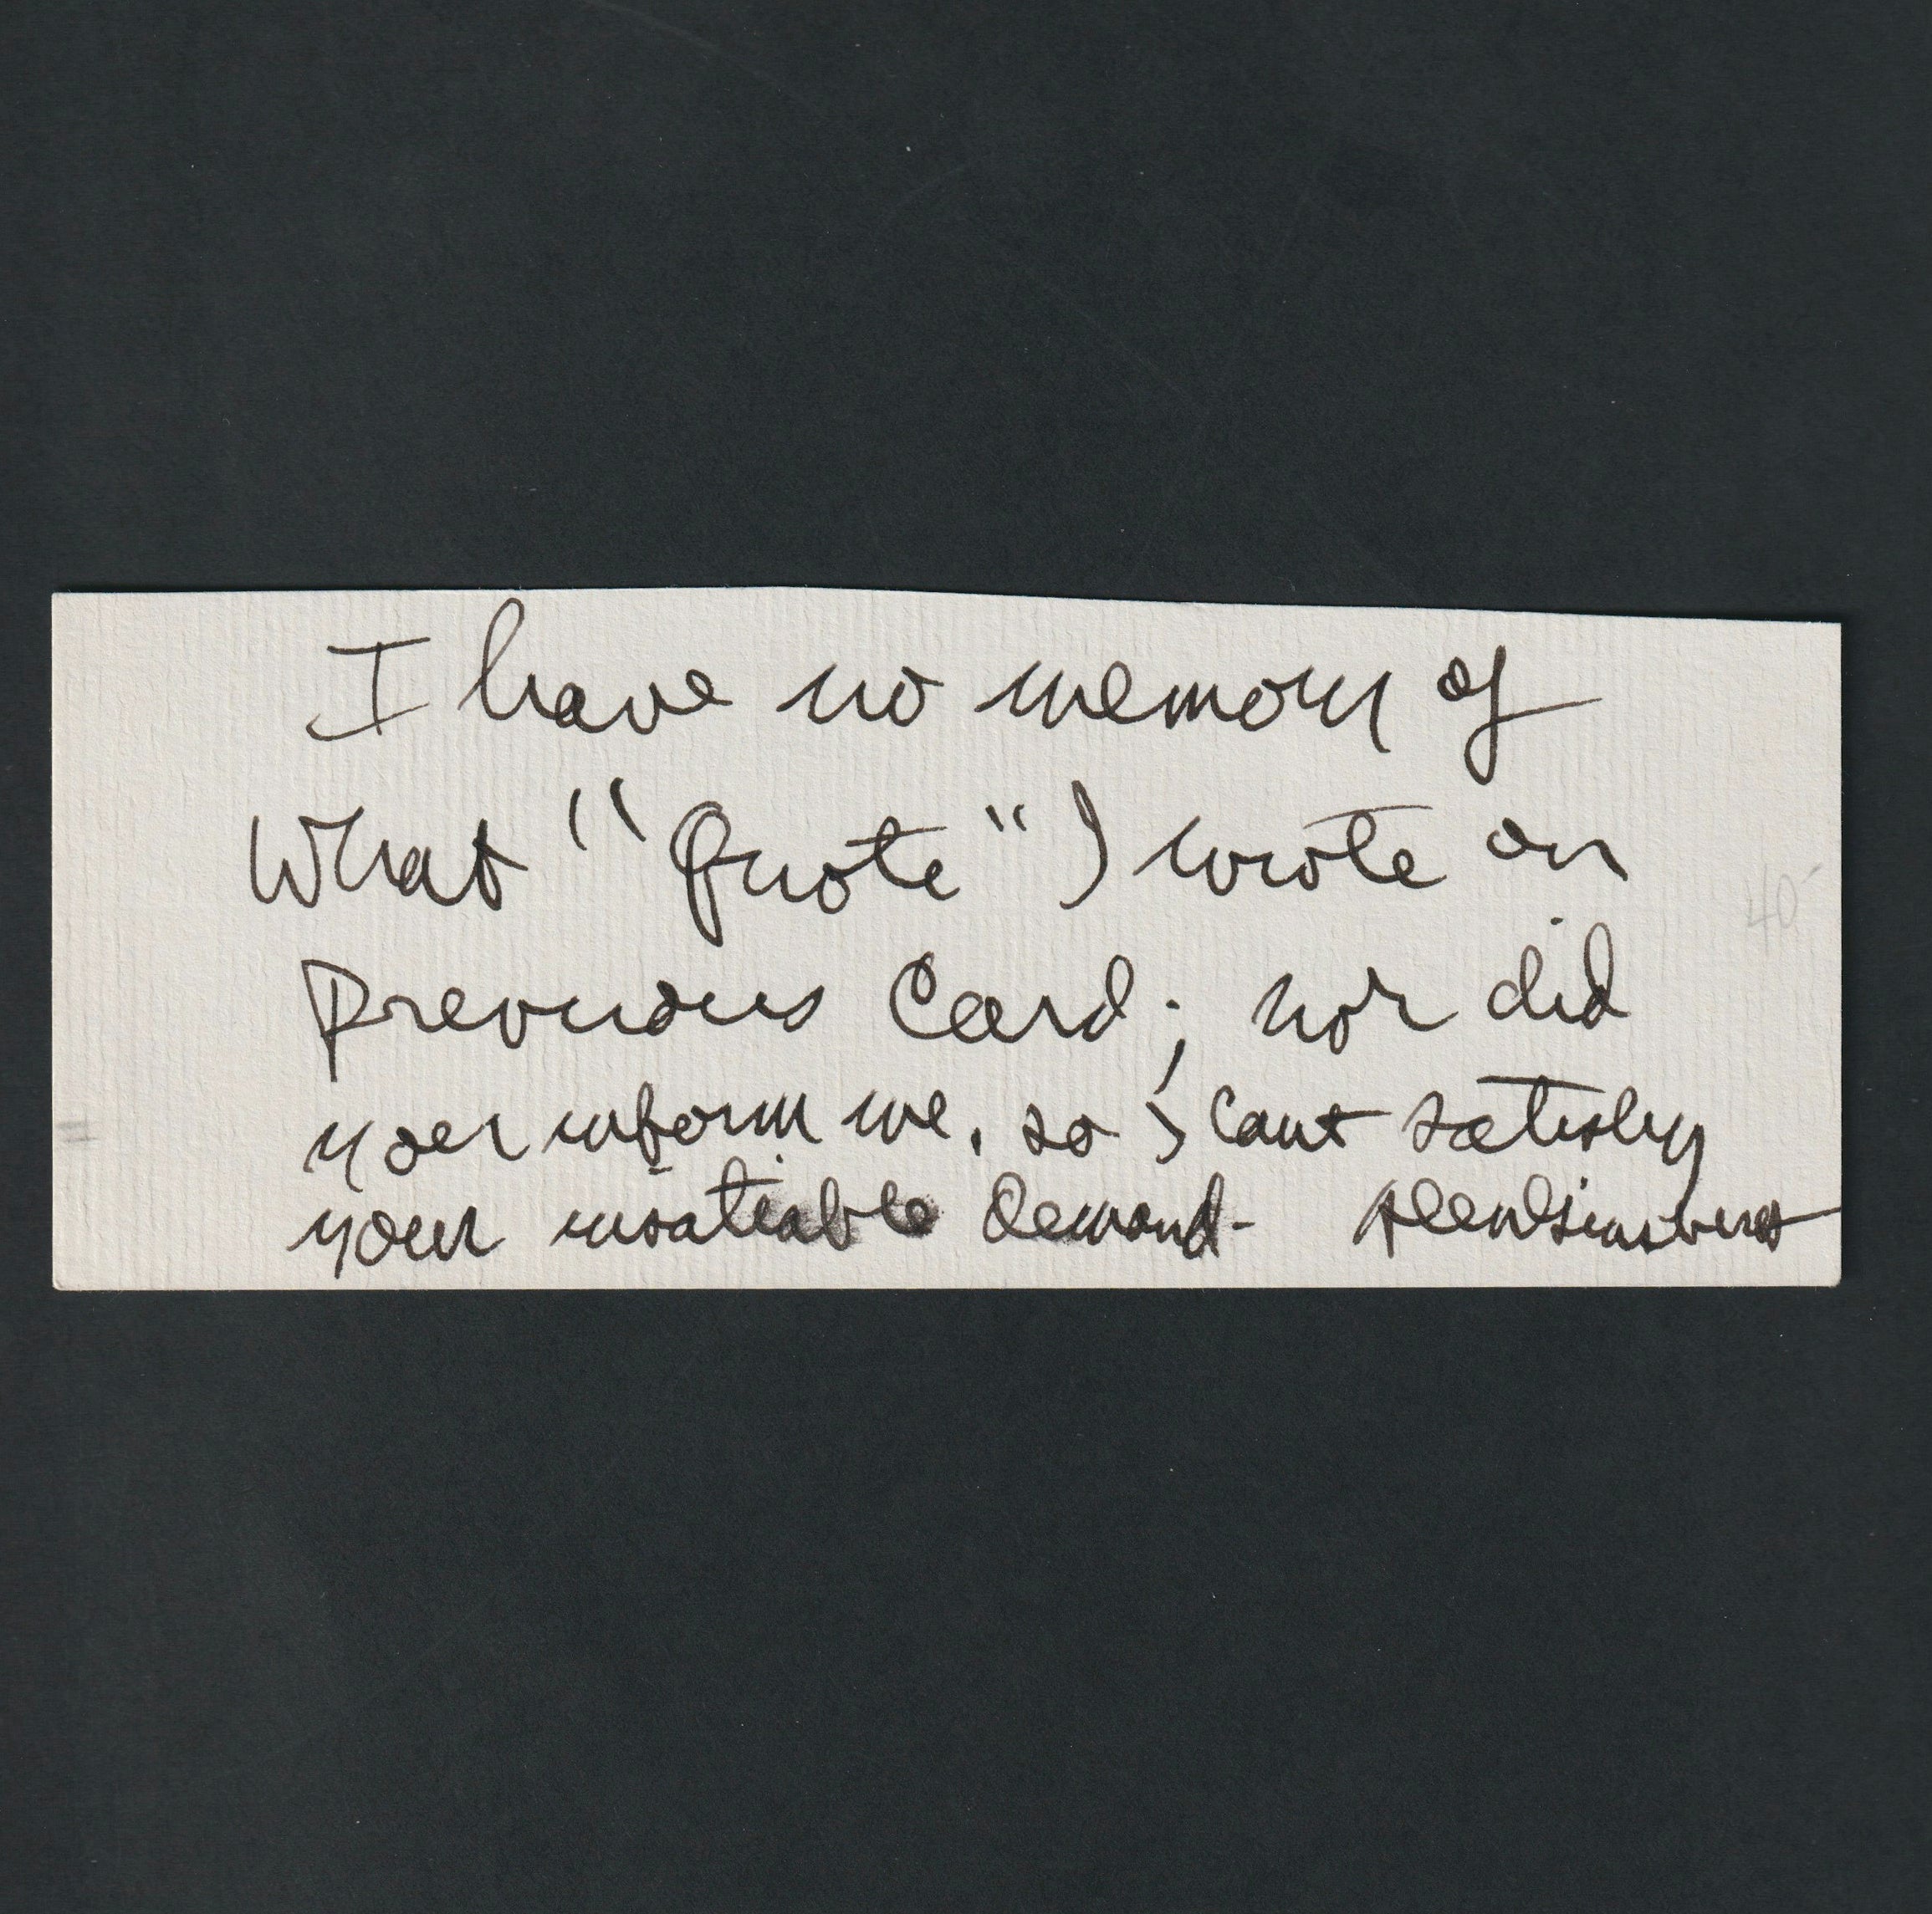 I have no memory of
What "Quote" I wrote on
Previous Card; nor did
you inform me, so I cant satisfy
your insatiable demand- Allen Ginsberg
40-